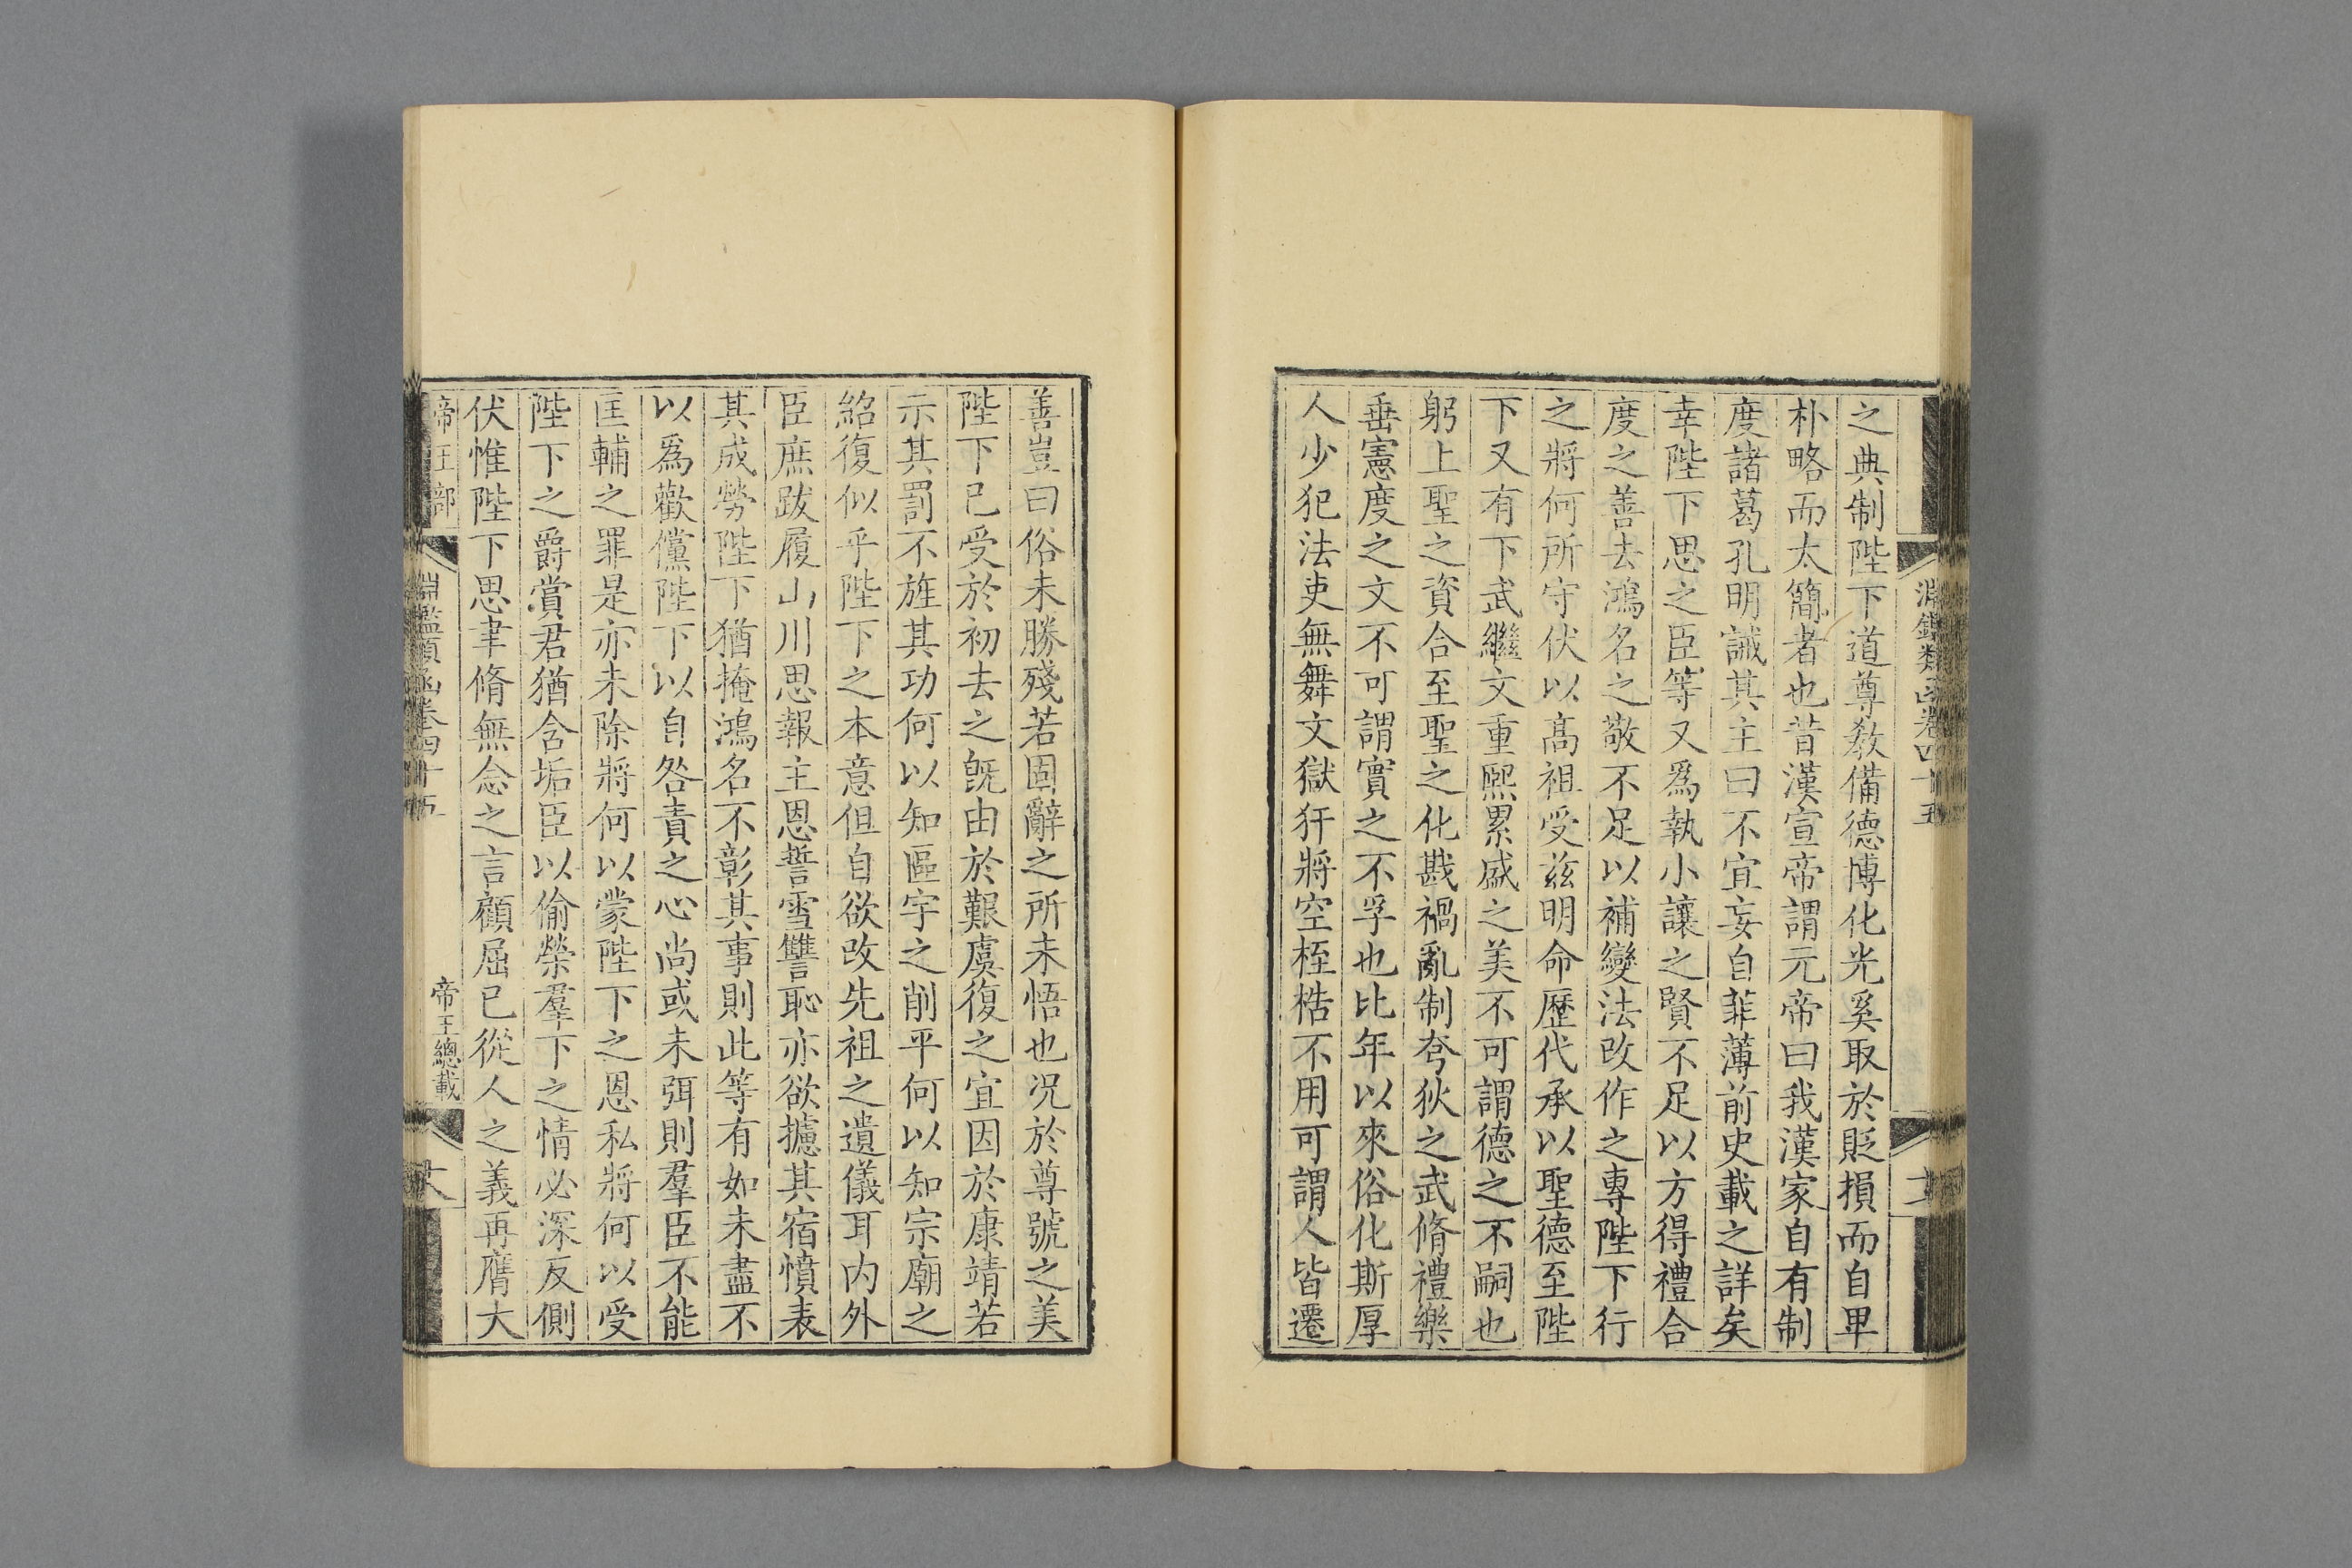 淵鑑類函卷四十五
之典制陛下道尊教備德博化光奚取於貶損而自卑
朴略而太簡者也昔漢宣帝謂元帝曰我漢家自有制
度諸葛孔明誡其主曰不宜妄自菲薄前史載之詳矣
幸陛下思之臣等又爲執小讓之賢不足以方得禮合
度之善去鴻名之敬不足以補變法改作之專陛下行
之將何所守伏以高祖受兹明命歷代承以聖德至陛
下又有下武繼文重熙累盛之美不可謂德之不嗣也
躬上聖之資合至聖之化戡禍亂制夸狄之武脩禮樂
垂憲度之文不可謂實之不孚也比年以來俗化斯厚
人少犯法吏無舞文獄犴將空桎梏不用可謂人皆遷
善豈曰俗未勝殘若固辭之所未悟也況於尊號之美
陛下已受於初去之旣由於艱虞復之宜因於康靖若
示其罰不旌其功何以知區宇之削平何以知宗廟之
紹復似乎陛下之本意但自欲改先祖之遺儀耳内外
臣庶跋履山川思報主恩誓雪讐恥亦欲攄其宿憤表
其成勞陛下猶掩鴻名不彰其事則此等有如未盡不
以爲歡儻陛下以自咎責之心尚或未弭則羣臣不能
匡輔之罪是亦未除將何以蒙陛下之恩私將何以受
陛下之爵賞君猶含垢臣以偷榮羣下之情必深反側
伏惟陛下思聿脩無念之言顧屈已從人之義再膺大
帝王部
淵鑑類函卷四十五
帝王總載